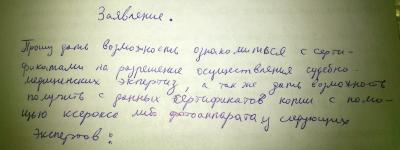 Заявление.
Прошу дать возможность ознакомиться с серти-
фикатами на разрешение осуществления судебно-
медицинских экспертиз, а так же дать возможность
получить с данных сертификатов копии с помо-
щью ксерокса либо фотоаппарата у следующих
экспертов: